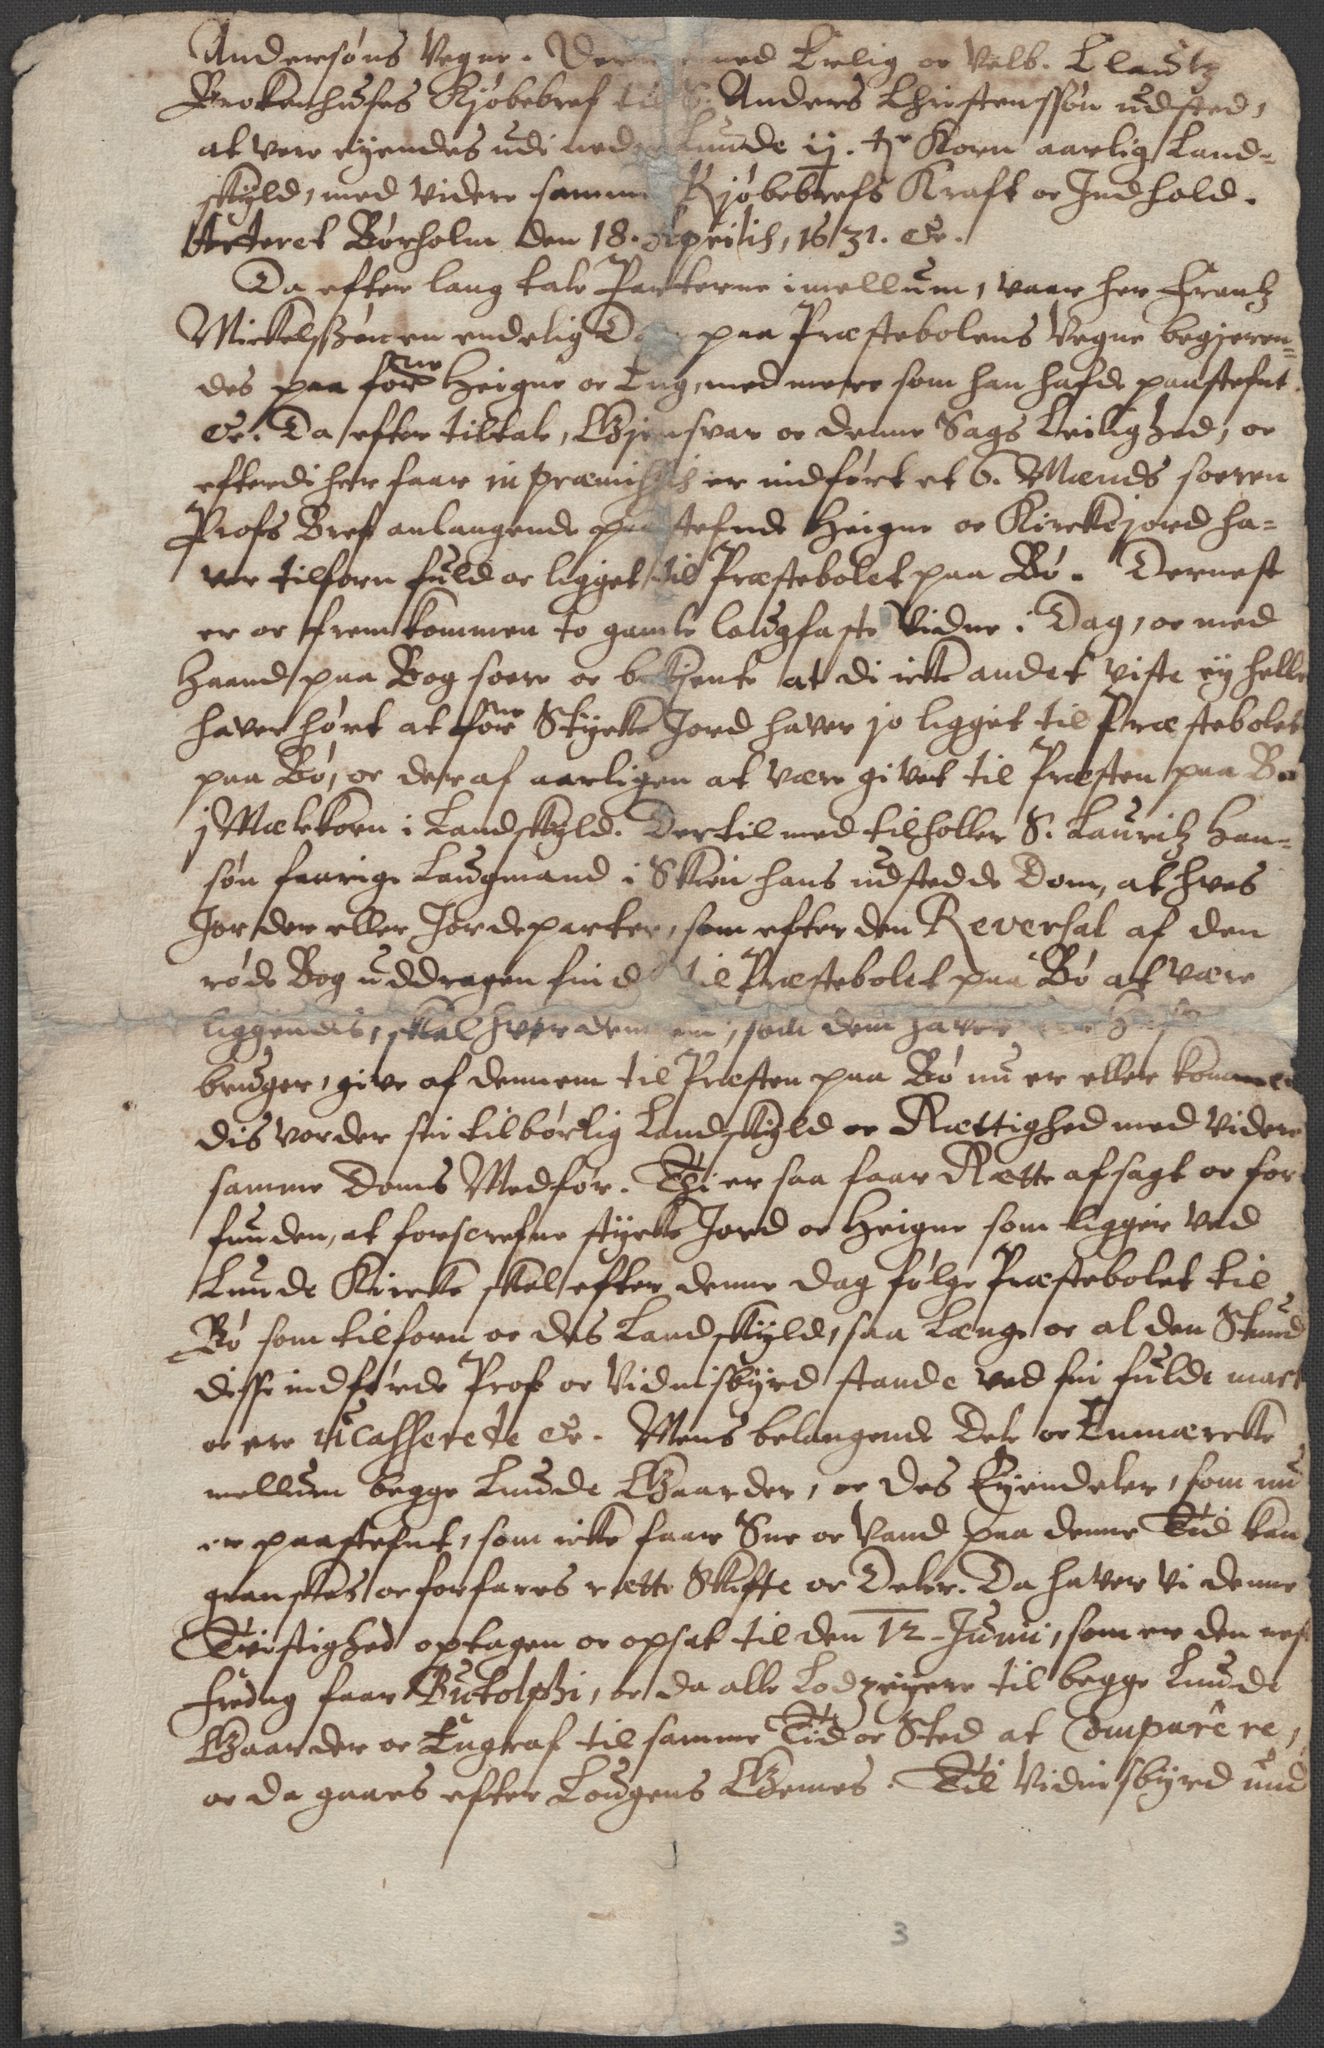 Andersøns Vegne. Der med Erlig oc Velb. Clautz
Brokenhuses Kjøbebref til S. Anders Christenssøn udsted,
at vere eyendes udi neder Lunde ij. tr Korn aarlig Land-
skyld, med videre samme Kjøbebrefs Kraft oc Indhold.
Acteret Børholm den 18. Aprilis, 1631. Etc.
Da efter lang tale Parterne imellum, vaar her Frantz
Mickelszøn en endelig Dom paa Præstebolens Vegne begjeren-
des paa forne Heigne oc Eng, med mere som han hafde paastefnt.
Etc. Da efter tiltale, Gjensvar oc denne Sags Leilighed, oc
efterdi her faar in præmissis er indført et 6. Mænds soeren
Profs Bref anlangende paastefnde Heigne oc Kirkejord ha-
ver tilforn fuld oc ligget til Præstebolet paa Bø. Dernest
er oc fremkommen to gamle laugfaste Vidne i Dag, oc med
Haand paa Bog soere oc bekjente at di ikke andet viste ey heller
haver hørt at forne Stycke Jord haver jo ligget til Præstebolet
paa Bø, oc deraf aarligen at være givet til Præsten paa Bø
j Mælekorn i Landskyld. Dertil med tilholler S. Lauritz Han-
søn faarige Laugmand i Skien hans udstedde Dom, at hves
Jorder eller Jordeparter, som efter den Reversal af den
røde Bog uddragen findes til Præstebolet paa Bø at være
liggendis, skal hver dennem, som dem haver
bruger, give af dennem til Præsten paa Bø nu er eller kommen-
dis vorder sin tilbørlig Landskyld oc Rættighed med videre
samme Doms Medfør. Thi er saa faar Rætte afsagt oc for
funden, at forscrefne stycke Jord oc Heigne som ligger ved
Lunde Kirke skal efter denne dag følge Præstebolet til
Bø som tilforn oc des Landskyld, saa længe oc al den Stund
disse indførde Prof oc Vidnisbyrd stande ved sin fulde mact
oc ere ucasserede Etc. Mens belangende Dele oc Enmærcke
mellum begge Lunde Gaarder, oc des Eyendeler, som nu
er paastefnt, som ikke faar Sne oc Vand paa denne Tid kan
granskes oc forfares rætte Skifte oc Deler. Da haver vi denne
Tvistighed optagen oc opsat til den 12 Junii, som er den nest
fredag faar Butolphi, oc da alle Lodzeyere til begge Lunde
Gaarder oc Lugraf til samme Tid oc Sted at Comparêre,
oc da gaaes efter Lougens Gemes. Til Vidnisbyrd und
3